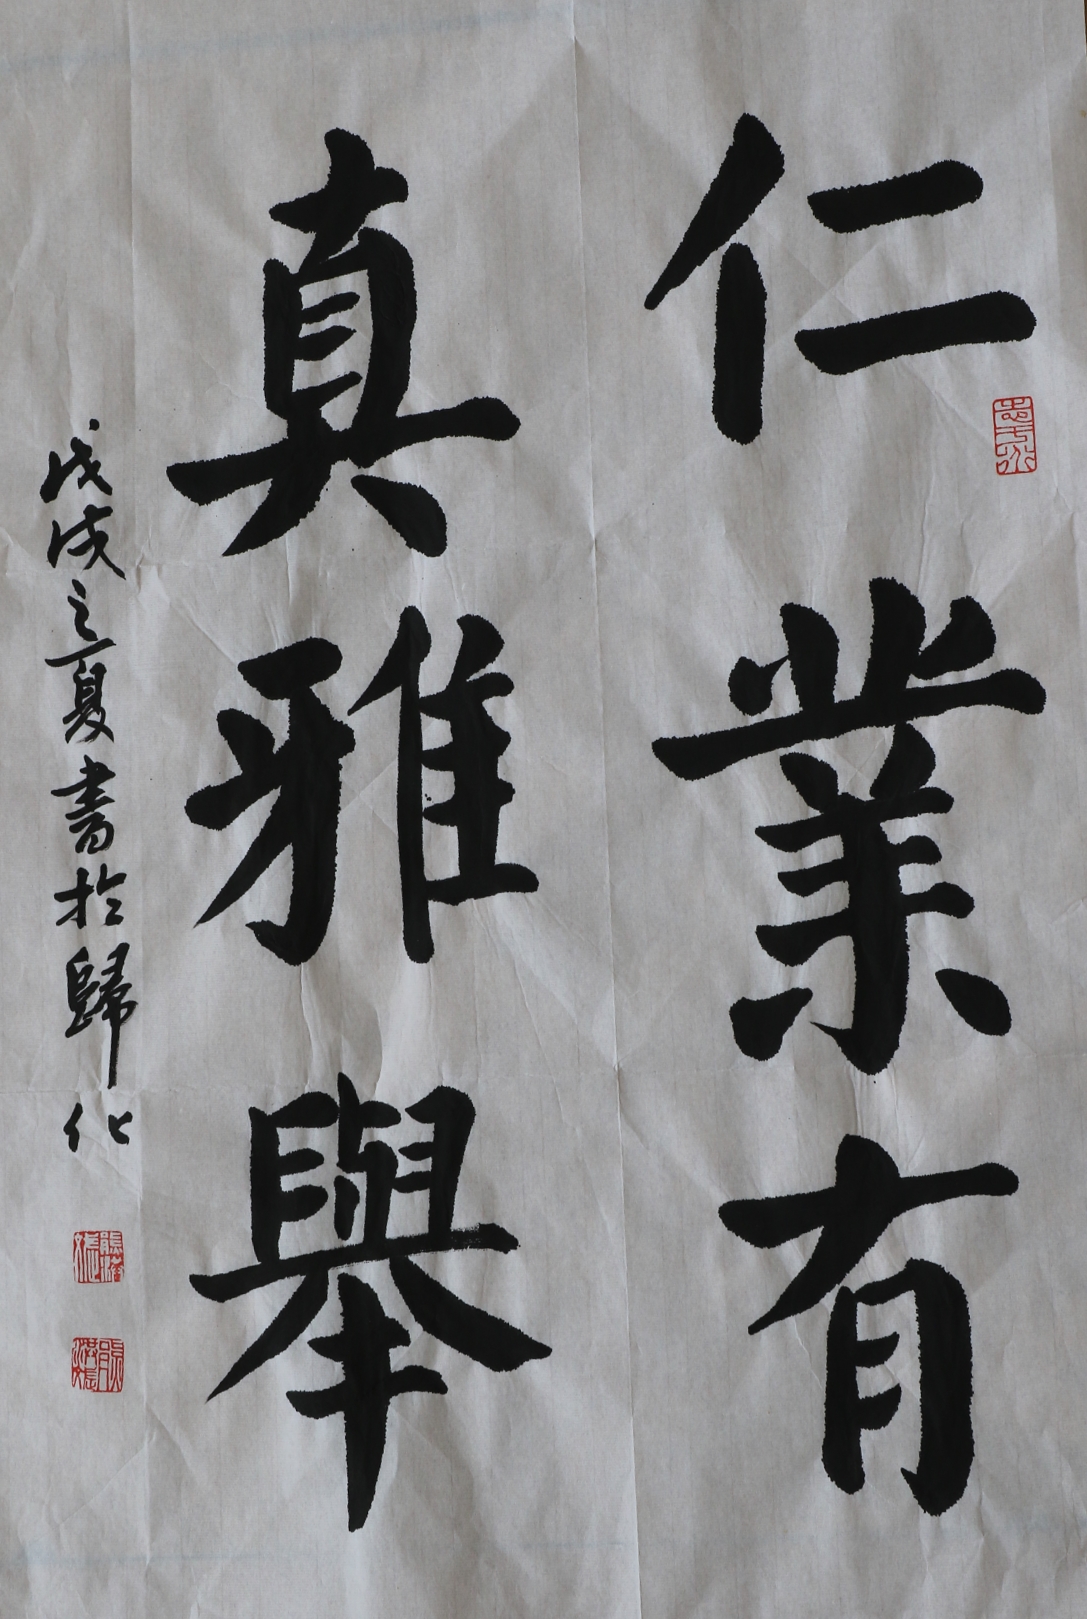 仁業有
真雅舉
戊戌之夏書於歸化